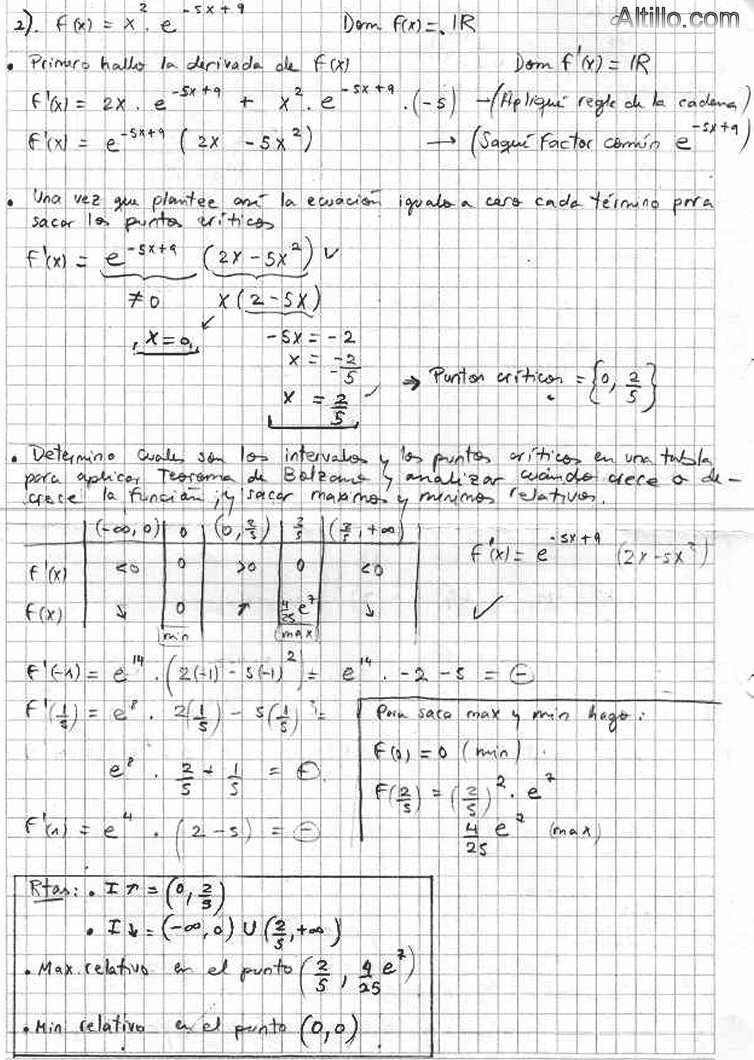 Altillo.com
2). f(x) = x² . e^(-5x+9)    Dom f(x) = IR
• Primero hallo la derivada de f(x)    Dom f'(x) = IR
f'(x) = 2x . e^(-5x+9) + x² . e^(-5x+9) . (-5) → (Apliqué regle de la cadena)
f'(x) = e^(-5x+9) (2x - 5x²)    → (Saqué Factor común e^(-5x+9))
• Una vez que plantee así la ecuación igualo a cero cada término para
sacar los puntos críticos
f'(x) = e^(-5x+9) (2x - 5x²) ✓
≠ 0    x(2 - 5x)
x = 0    -5x = -2
x = -2/-5
x = 2/5    → Puntos críticos = {0, 2/5}
• Determino cuales son los intervalos y los puntos críticos en una tabla
para aplicar Teorema de Bolzano y analizar cuándo crece o de-
crece la función, y sacar maximos y minimos relativos.
(-∞, 0) | 0 | (0, 2/5) | 2/5 | (2/5, +∞)    f'(x) = e^(-5x+9) (2x - 5x²)
f'(x) | <0 | 0 | >0 | 0 | <0
f(x) | ↓ | 0 | ↑ | 4/25 e^7 | ↓    ✓
min    max
f'(-1) = e^14 . (2(-1) - 5(-1)²) = e^14 . -2 - 5 = ⊖
f'(1/5) = e^8 . 2(1/5) - 5(1/5)² =
e^8 . 2/5 - 1/5 = ⊕
f'(1) = e^4 . (2 - 5) = ⊖
Para saca max y min hago:
F(0) = 0 (min)
F(2/5) = (2/5)² . e^7
4/25 e^7 (max)
Rtas: • I↑ = (0, 2/5)
• I↓ = (-∞, 0) U (2/5, +∞)
• Max. relativo en el punto (2/5, 4/25 e^7)
• Min relativo en el punto (0,0)